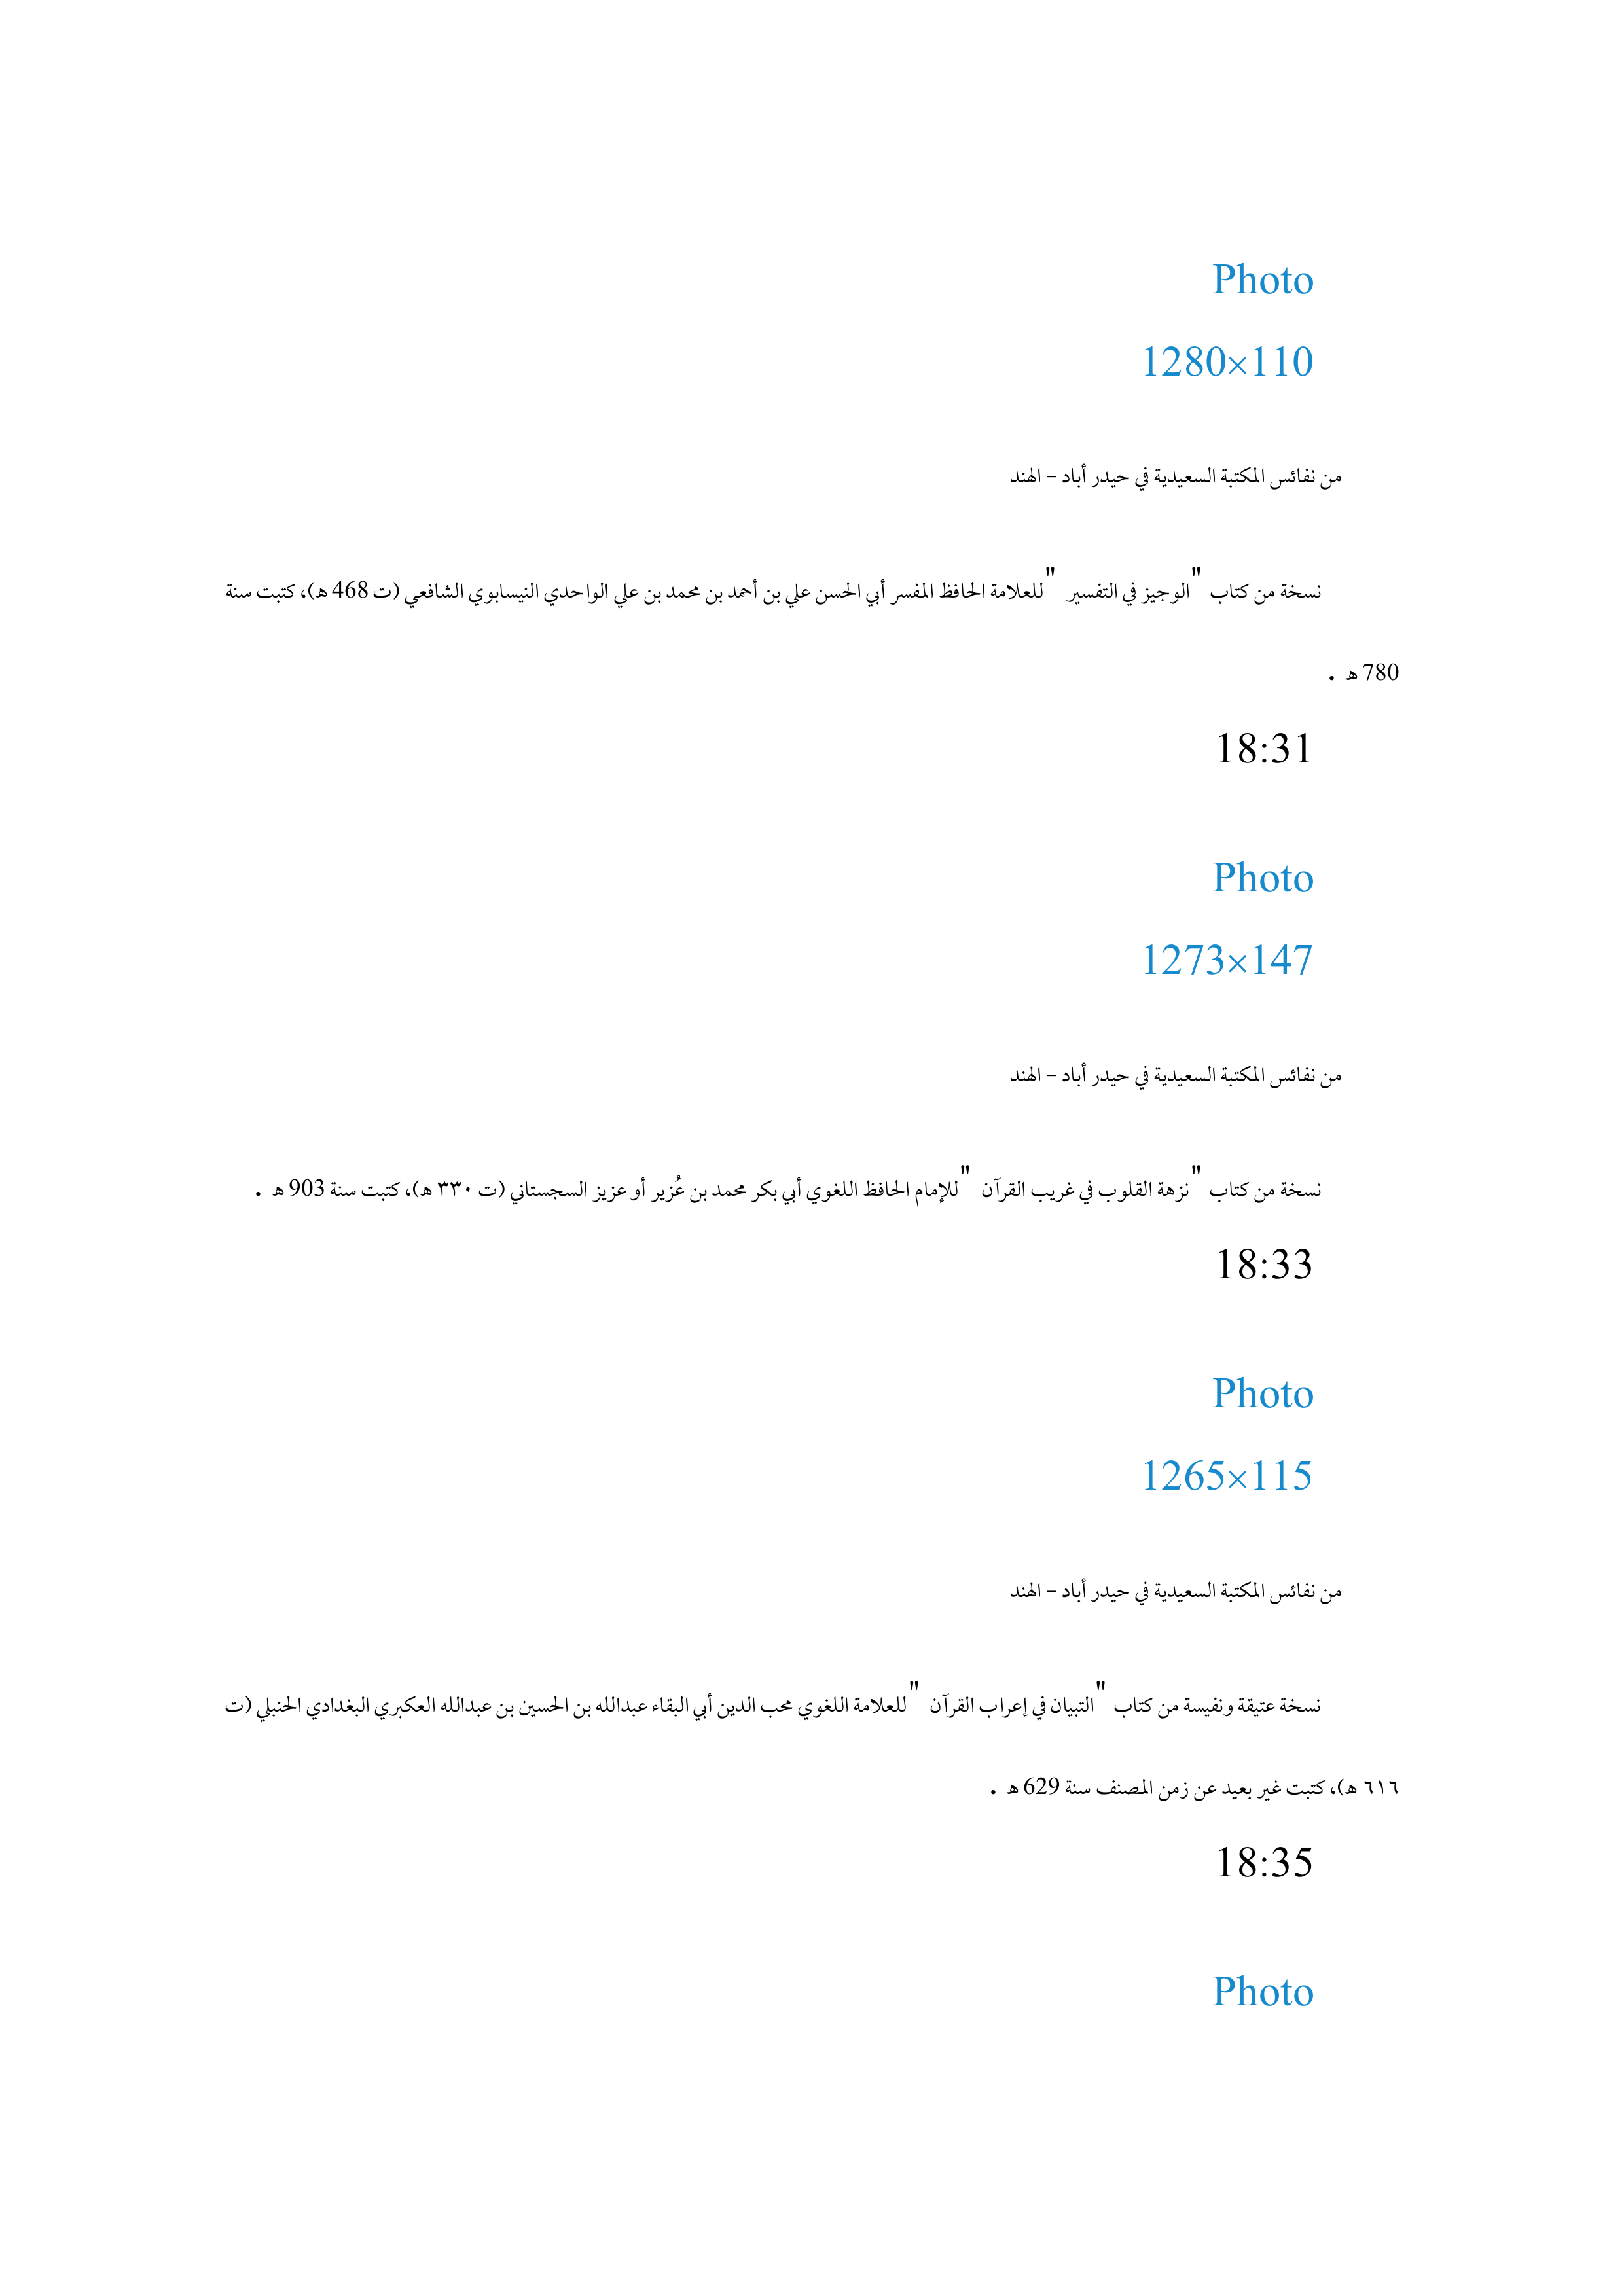 Photo
1280×110
من نفائس المكتبة السعيدية في حيدر أباد – الهند
نسخة من كتاب "الوجيز في التفسير "للعلامة الحافظ المفسر أبي الحسن علي بن أحمد بن محمد بن علي الواحدي النيسابوي الشافعي (ت 468 ه)، كتبت سنة
780 ه .
18:31
Photo
1273×147
من نفائس المكتبة السعيدية في حيدر أباد – الهند
نسخة من كتاب "نزهة القلوب في غريب القرآن "للإمام الحافظ اللغوي أبي بكر محمد بن عُزير أو عزيز السجستاني (ت ٣٣٠ ه)، كتبت سنة 903 ه .
18:33
Photo
1265×115
من نفائس المكتبة السعيدية في حيدر أباد – الهند
نسخة عتيقة ونفيسة من كتاب "التبيان في إعراب القرآن "للعلامة اللغوي محب الدين أبي البقاء عبدالله بن الحسين بن عبدالله العكبري البغدادي الحنبلي (ت
٦١٦ ه)، كتبت غير بعيد عن زمن المصنف سنة 629 ه .
18:35
Photo